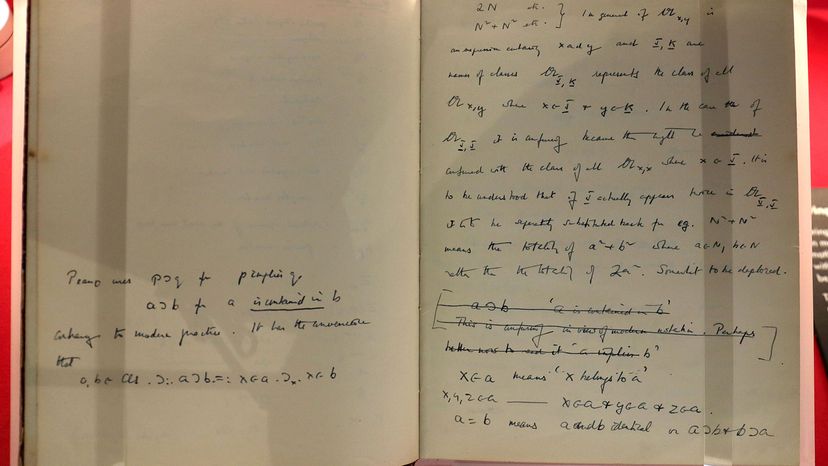 Peano uses p⊃q for p implies q
a⊃b for a is contained in b
contrary to modern practice. It has the convenience
that
a, b ∈ Cls .⊃:. a⊃b .=: x∈a .⊃ₓ. x∈b
2N etc.
N²+N² etc. } In general if 𝔄x,y is
an expression containing x and y and X, K are
names of classes 𝔄X,K represents the class of all
𝔄x,y where x∈X + y∈K. In the case of
𝔄X,X it is confusing because this might be
confused with the class of all 𝔄x,x where x∈X. It is
to be understood that if X actually appears twice in 𝔄X,X
it is to be separately substituted back for eg. N²+N²
means the totality of a²+b² where a∈N, b∈N
rather than the totality of 2a². Somewhat to be deplored.
[ a⊃b 'a is contained in b'
This is confusing in view of modern notation. Perhaps
better now to read it 'a implies b' ]
x∈a means 'x belongs to a'
x,y,z∈a —— x∈a + y∈a + z∈a.
a=b means a and b identical or a⊃b + b⊃a